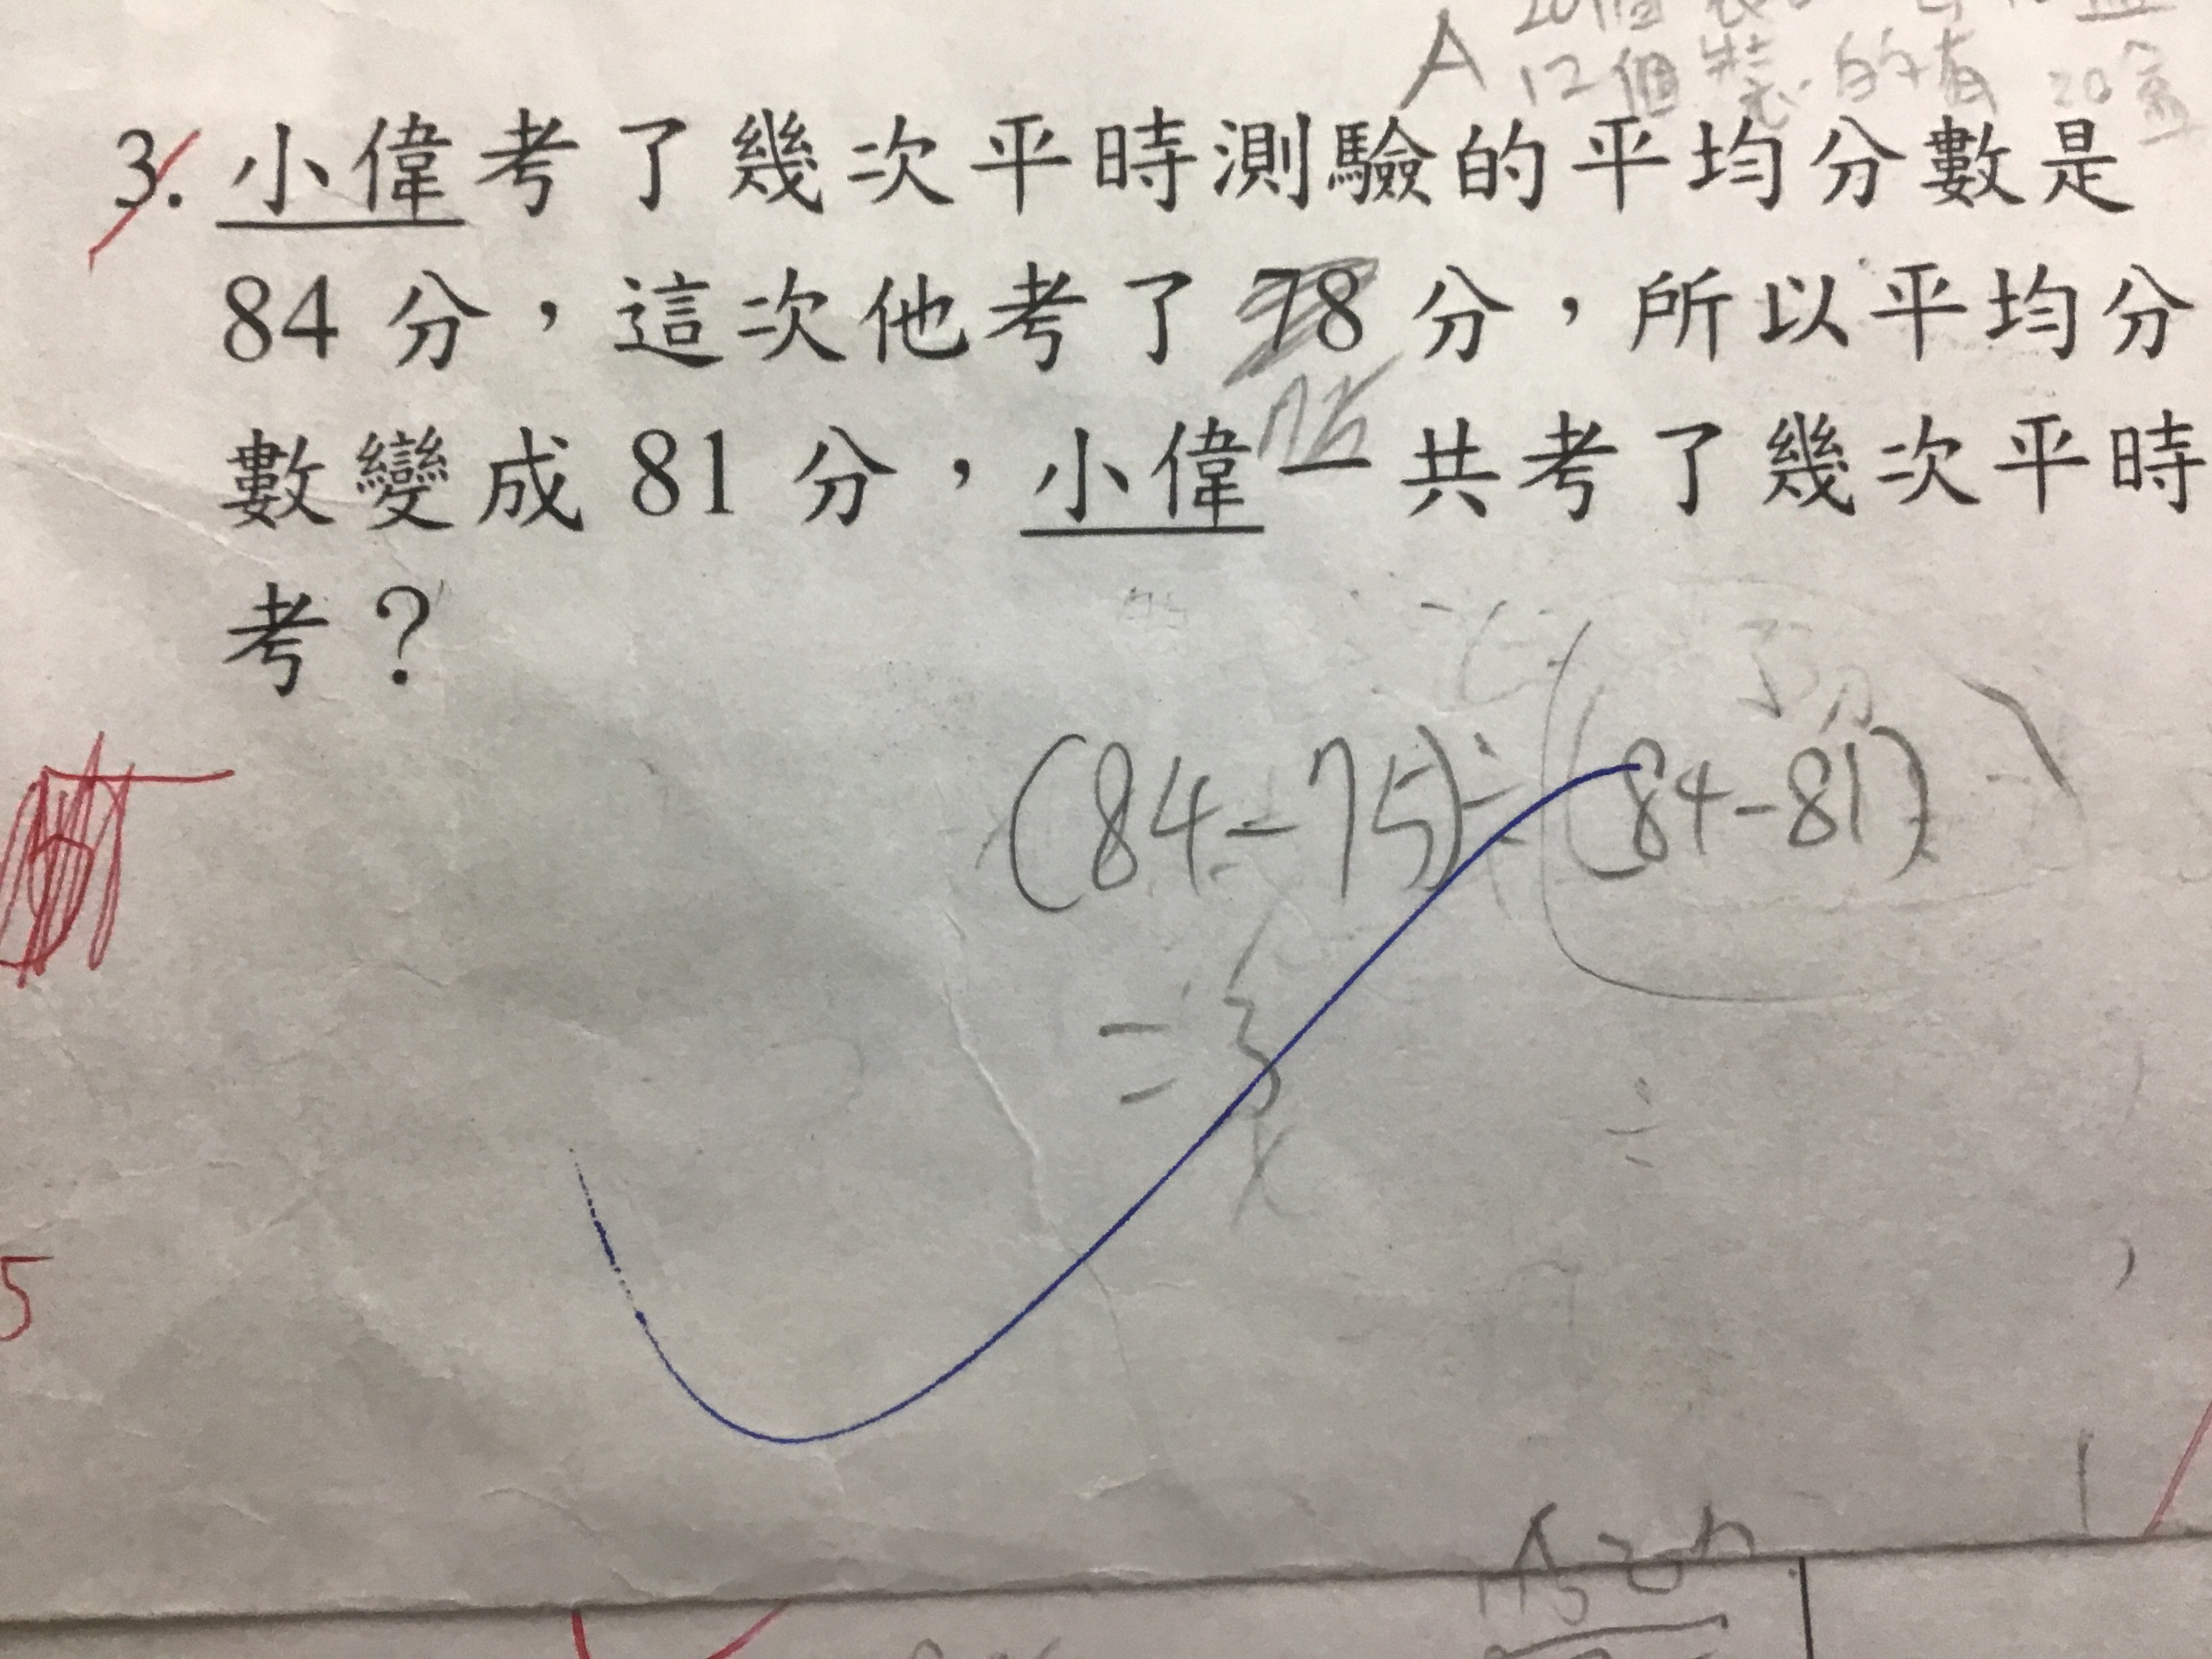 A
12個裝的有20盒
3. 小偉考了幾次平時測驗的平均分數是
84 分，這次他考了 78 分，所以平均分
75
數變成 81 分，小偉一共考了幾次平時
考？
(84-75)÷(84-81)
=3
÷
5
A:3次